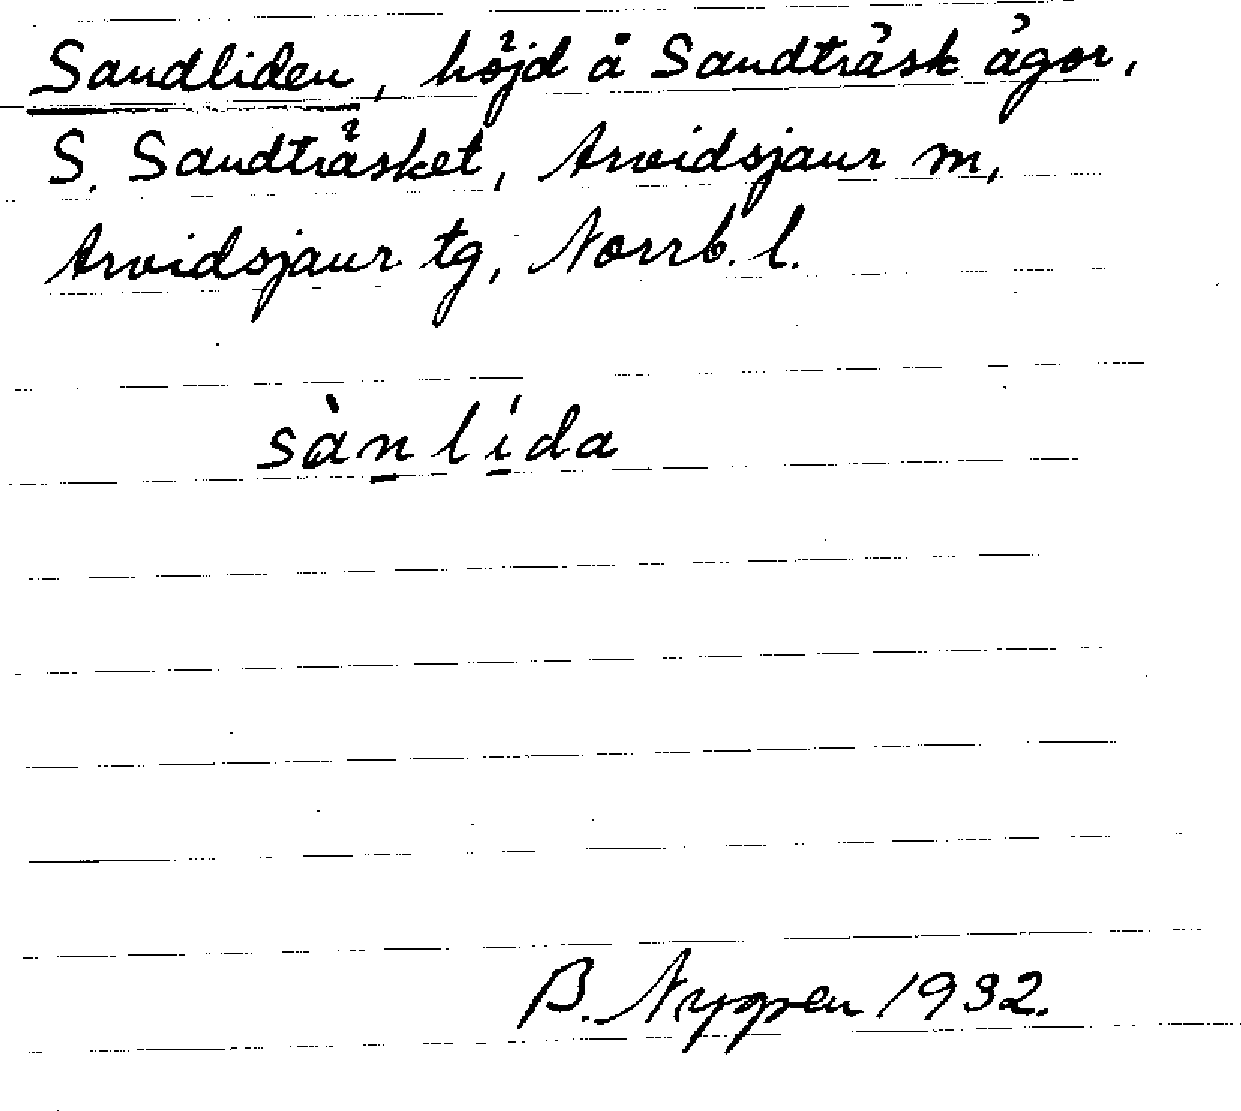 Sandliden, höjd å Sandträsk ägor,
S. Sandträsket, Arvidsjaur m,
Arvidsjaur tg, Norrb. l.
sàn̲ lí̲da
B. Nyggren 1932.